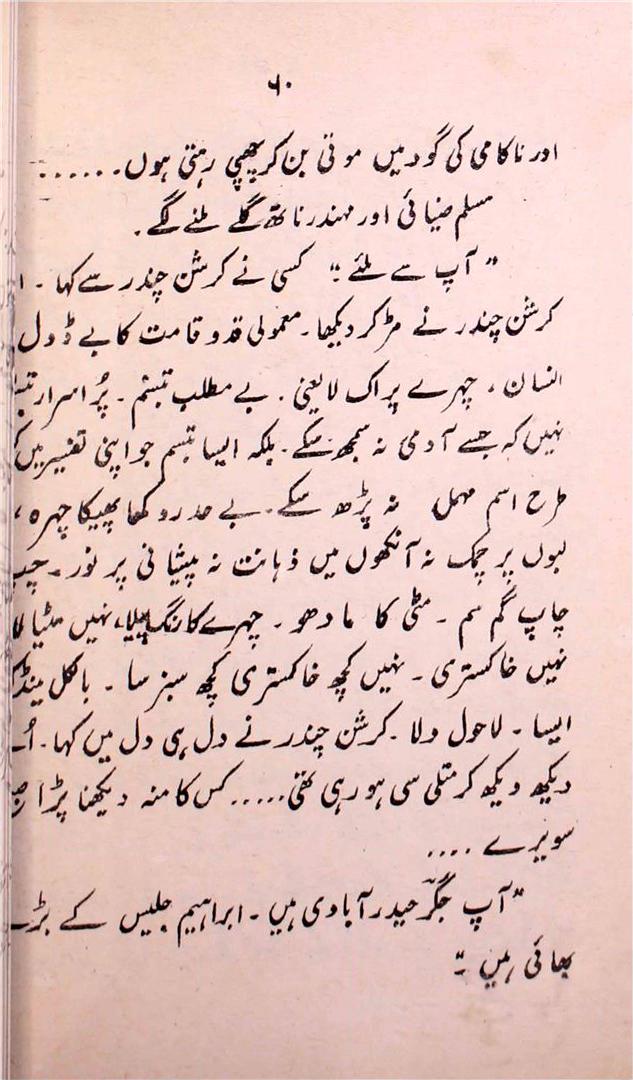 ۶۰
اور ناکامی کی گود میں موتی بن کر چھپی رہتی ہوں......
مسلم ضیائی اور مہندر ناتھ گلے ملنے لگے۔
"آپ سے ملئے:" کسی نے کرشن چندر سے کہا۔
کرشن چندر نے مڑ کر دیکھا۔ معمولی قد و قامت کا بے ڈول
انسان، چہرے پر اک لایعنی۔ بے مطلب تبسّم۔ پُر اسرار
نہیں کہ جسے آدمی نہ سمجھ سکے۔ بلکہ ایسا تبسم جو اپنی تفسیر میں
طرح اسم مہمل نہ پڑھ سکے۔ بے حد روکھا پھیکا چہرہ،
لبوں پر چمک نہ آنکھوں میں ذہانت نہ پیشانی پر نور۔ چپ
چاپ گم سم۔ مٹی کا مادھو۔ چہرے کا رنگ پیلا، نہیں مٹیالا
نہیں خاکستری۔ نہیں کچھ خاکستری کچھ سبز سا۔ بالکل مینڈک
ایسا۔ لاحول ولا۔ کرشن چندر نے دل ہی دل میں کہا۔ اُسے
دیکھ دیکھ کر متلی سی ہو رہی تھی..... کس کا منہ دیکھنا پڑا صبح
سویرے....
"آپ جگرؔ حیدرآبادی ہیں۔ ابراہیم جلیس کے بڑے
بھائی ہیں۔"